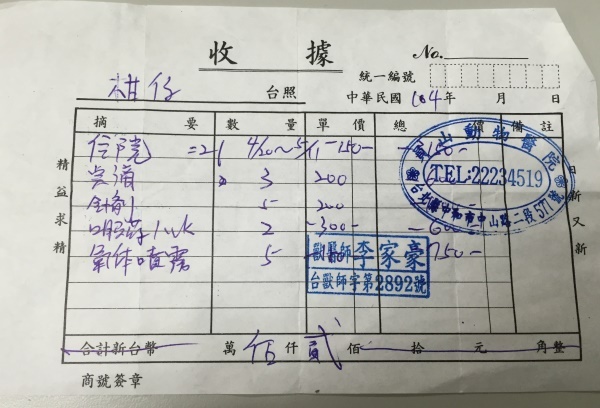 收據 No.
統一編號
台照 中華民國 104年 月 日
摘要 數量 單價 總價 備註
住院 =21 4/20~5/1 150-
3 200
針劑 5 200
口服藥/wk 2 300-
氣体噴霧 5 750-
員山動物醫院
TEL:22234519
台北縣中和市中山路二段577號
獸醫師 李家豪
台獸師字第2892號
精益求精
日新又新
合計新台幣 萬 伍仟 貳佰 拾 元 角整
商號簽章